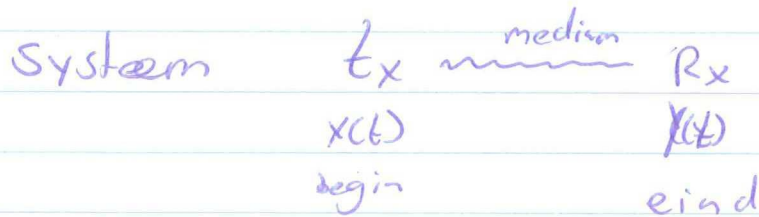 Systeem tx medium Rx
x(t) y(t)
begin eind